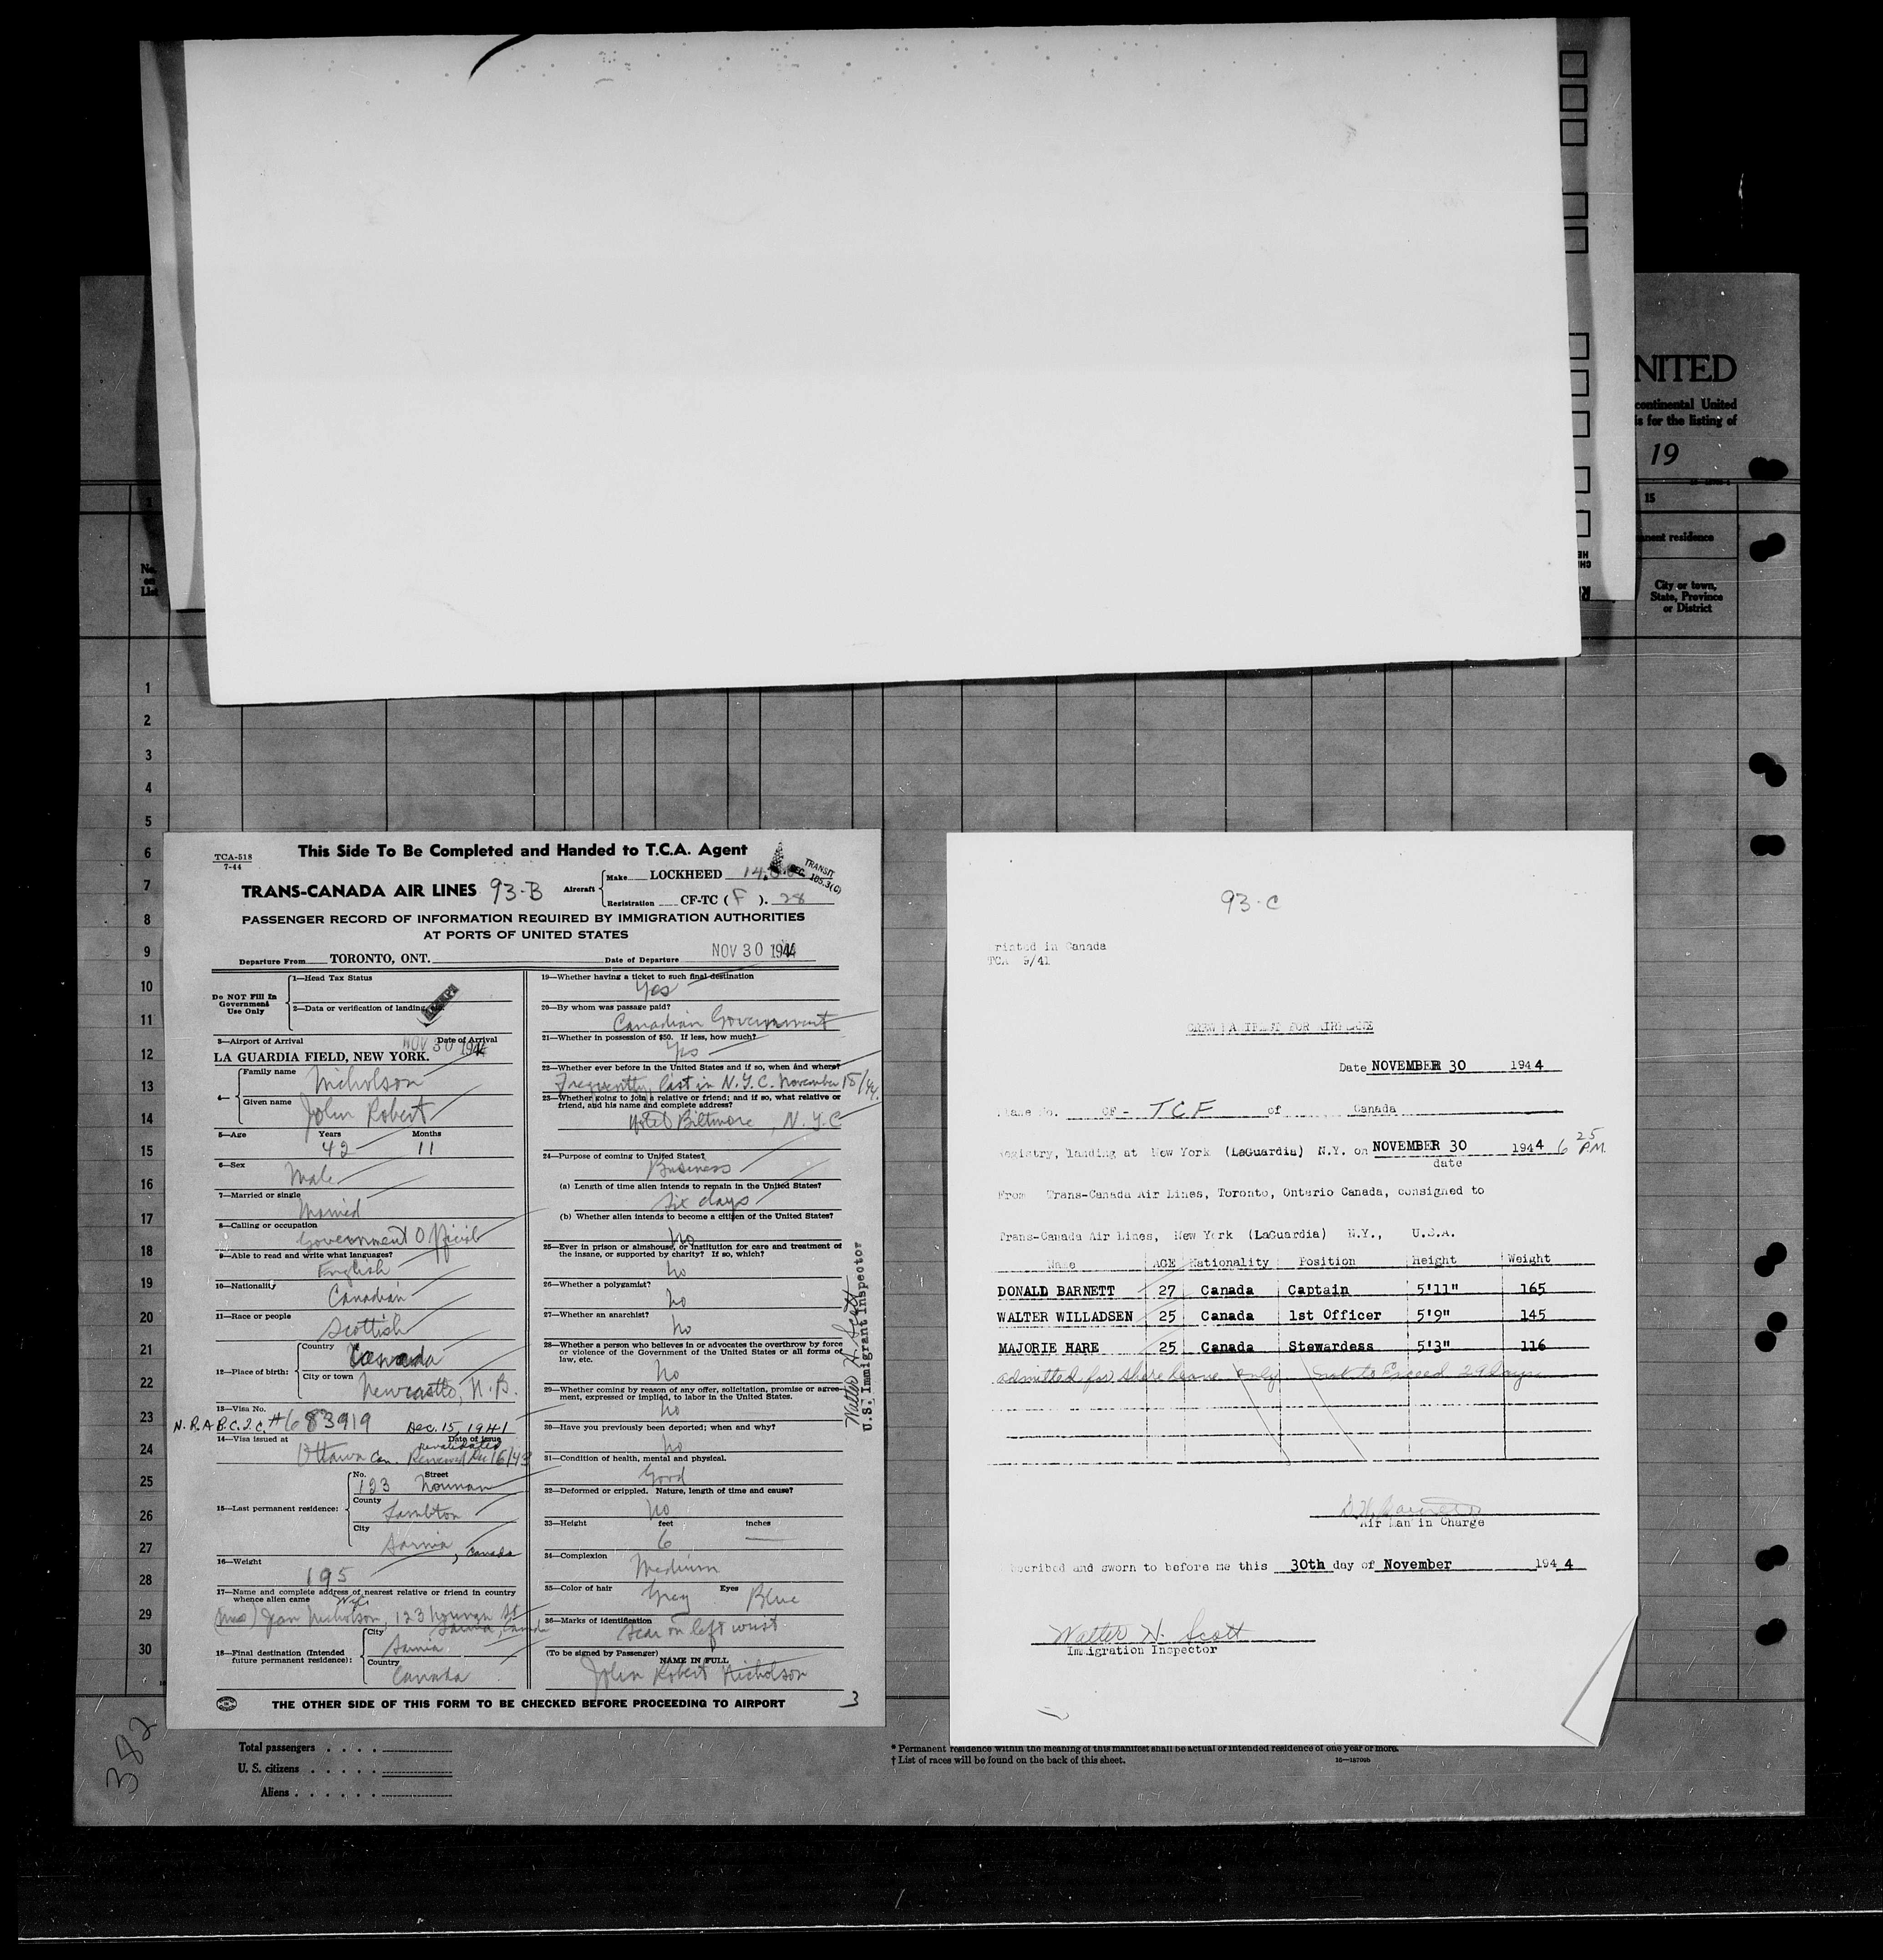 NITED
continental United
is for the listing of
19
15
nent residence
No.
on
List
City or town,
State, Province
or District
1
2
3
4
5
6
7
8
9
10
11
12
13
14
15
16
17
18
19
20
21
22
23
24
25
26
27
28
29
30
TCA-518
7-44
This Side To Be Completed and Handed to T.C.A. Agent
TRANS-CANADA AIR LINES 93-B
Aircraft
Make LOCKHEED
TRANSIT
SEC. 105.3(C)
Registration CF-TC ( F ). 28
PASSENGER RECORD OF INFORMATION REQUIRED BY IMMIGRATION AUTHORITIES
AT PORTS OF UNITED STATES
Departure From TORONTO, ONT. Date of Departure NOV 30 1944
Do NOT Fill In
Government
Use Only
1—Head Tax Status
2—Data or verification of landing, etc.
3—Airport of Arrival Date of Arrival
LA GUARDIA FIELD, NEW YORK. NOV 30 1944
4— Family name Nicholson
Given name John Robert
5—Age Years Months
42 11
6—Sex
Male
7—Married or single
Married
8—Calling or occupation
Government Official
9—Able to read and write what languages?
English
10—Nationality
Canadian
11—Race or people
Scottish
12—Place of birth: Country Canada
City or town Newcastle, N.B.
13—Visa No.
N.R.A B.C.I.C. #683919 Dec. 15, 1941
14—Visa issued at Date of issue
revalidated
Ottawa Can. Renewed Dec 16/43
15—Last permanent residence:
No. Street
123 Norman
County
Lambton
City
Sarnia, Canada
16—Weight
195
17—Name and complete address of nearest relative or friend in country
whence alien came Wife
(Mrs) Jean Nicholson, 123 Norman St
Sarnia, Canada
18—Final destination (Intended
future permanent residence):
City
Sarnia
Country
Canada
19—Whether having a ticket to such final destination
Yes
20—By whom was passage paid?
Canadian Government
21—Whether in possession of $50. If less, how much?
Yes
22—Whether ever before in the United States and if so, when and where?
Frequently, last in N.Y.C. November 18/44.
23—Whether going to join a relative or friend; and if so, what relative or
friend, and his name and complete address?
Hotel Biltmore, N.Y.C
24—Purpose of coming to United States?
Business
(a) Length of time alien intends to remain in the United States?
Six days
(b) Whether alien intends to become a citizen of the United States?
No
25—Ever in prison or almshouse, or institution for care and treatment of
the insane, or supported by charity? If so, which?
No
26—Whether a polygamist?
No
27—Whether an anarchist?
No
28—Whether a person who believes in or advocates the overthrow by force
or violence of the Government of the United States or all forms of
law, etc.
No
29—Whether coming by reason of any offer, solicitation, promise or agree-
ment, expressed or implied, to labor in the United States.
No
30—Have you previously been deported; when and why?
No
31—Condition of health, mental and physical.
Good
32—Deformed or crippled. Nature, length of time and cause?
No
33—Height feet inches
6 —
34—Complexion
Medium
35—Color of hair Eyes
Grey Blue
36—Marks of identification
Scar on left wrist
(To be signed by Passenger)
NAME IN FULL
John Robert Nicholson
Walter N. Scott
U.S. Immigrant Inspector
THE OTHER SIDE OF THIS FORM TO BE CHECKED BEFORE PROCEEDING TO AIRPORT
3
382
Total passengers . . . .
U. S. citizens . . . . .
Aliens . . . . . .
93-C
rinted in Canada
TCA 9/41
CREW MANIFEST FOR AIRPLANE
Date NOVEMBER 30 1944
Plane No. CF - TCF of Canada
registry, landing at New York (LaGuardia) N.Y. on NOVEMBER 30 1944 6 25 P.M.
date
From Trans-Canada Air Lines, Toronto, Ontario Canada, consigned to
Trans-Canada Air Lines, New York (LaGuardia) N.Y., U.S.A.
Name AGE Nationality Position Height Weight
DONALD BARNETT 27 Canada Captain 5'11" 165
WALTER WILLADSEN 25 Canada 1st Officer 5'9" 145
MAJORIE HARE 25 Canada Stewardess 5'3" 116
admitted for shore leave only not to Exceed 29 days
Air Man in Charge
scribed and sworn to before me this 30th day of November 1944
Walter N. Scott
Immigration Inspector
* Permanent residence within the meaning of this manifest shall be actual or intended residence of one year or more.
† List of races will be found on the back of this sheet.
16—18709b